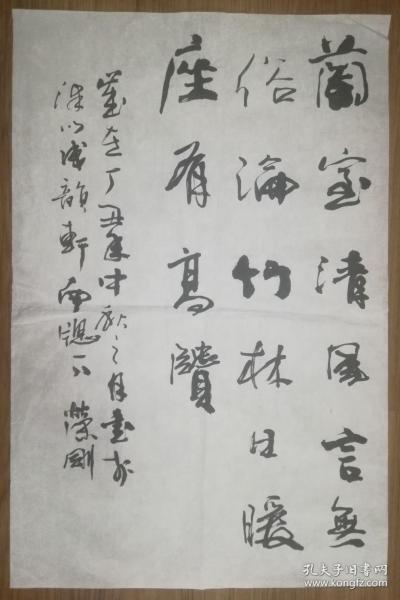 蘭室清風言無
俗淪竹林日暖
座有高贒
歲在丁丑年中秋之月書於
韻軒 榮剛
孔夫子旧书网
www.kongfz.com